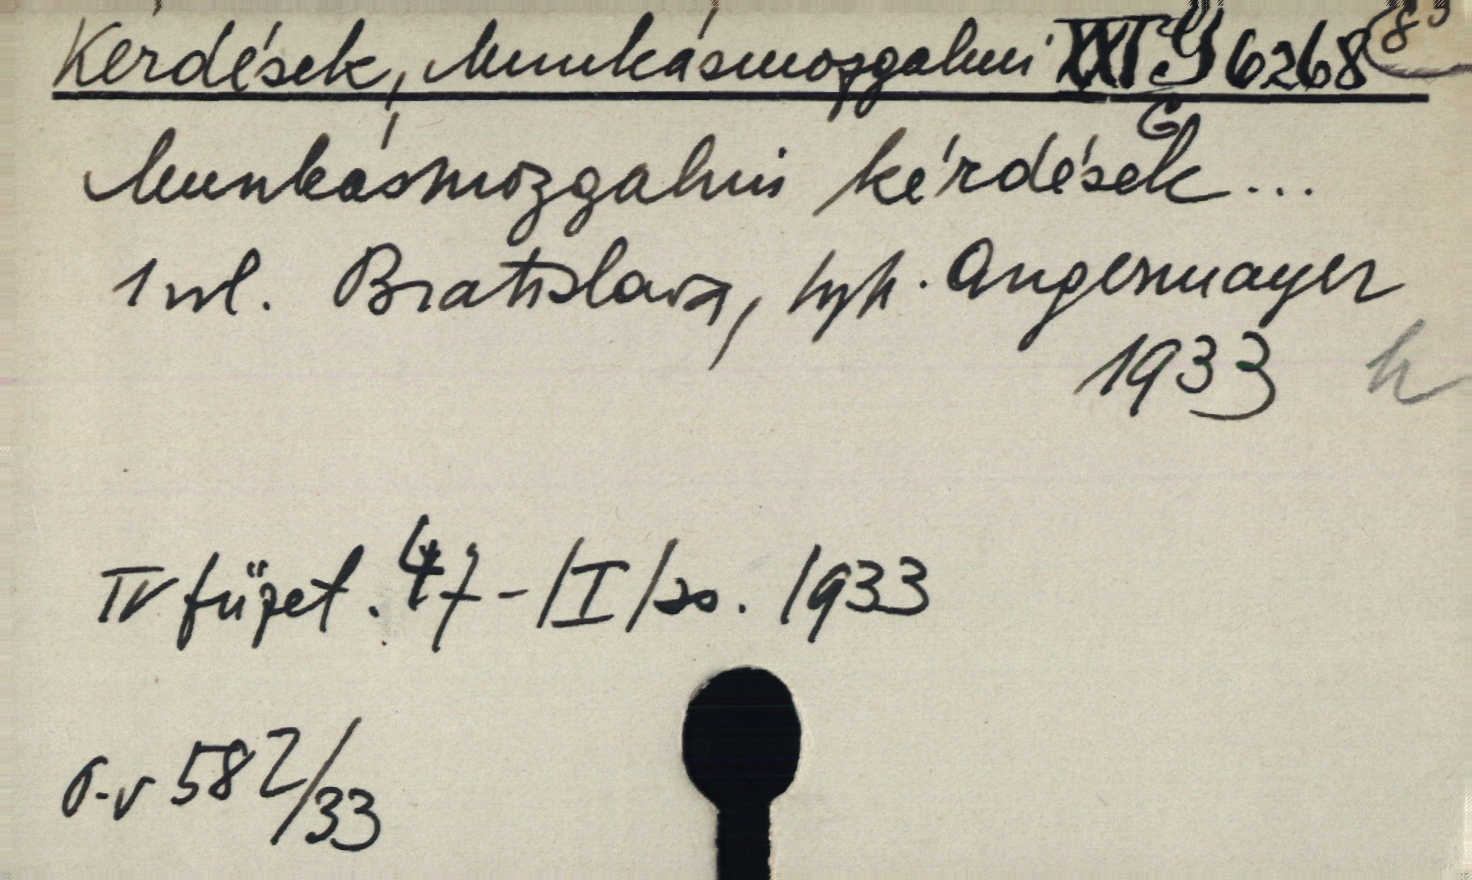 Kérdések, Munkásmozgalmi G 6268
Munkásmozgalmi kérdések...
1 vol. Bratislava, typ. Angermayer
1933
IV füzet. 47-/I/20. 1933
582/33